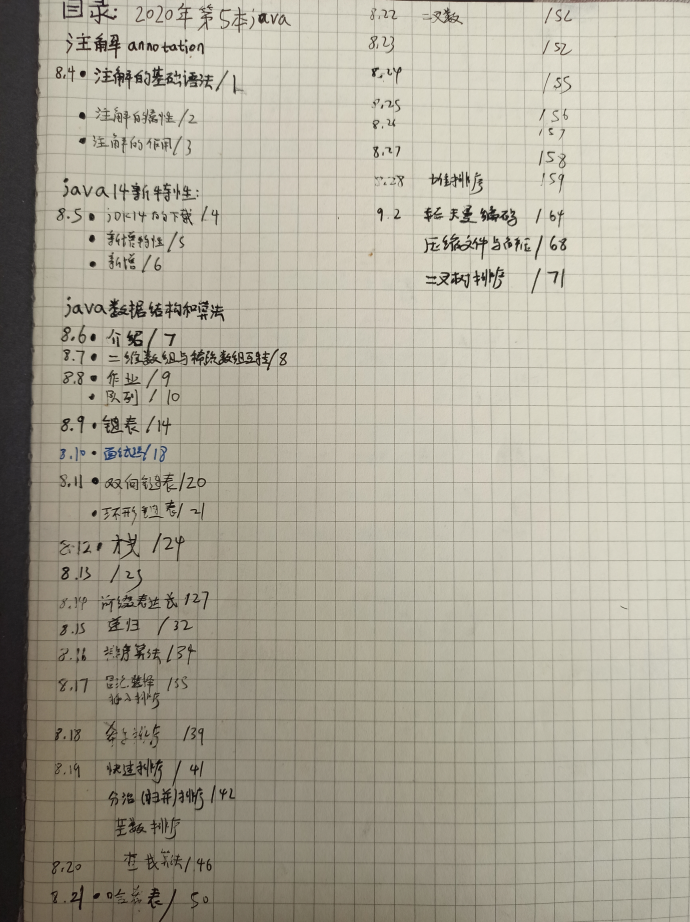 目录: 2020年第5本java
注解 annotation
8.4 • 注解的基础语法/1
• 注解的属性/2
• 注解的作用/3
java14新特性:
8.5 • jDK14的下载/4
• 新增特性/5
• 新增/6
java数据结构和算法
8.6 • 介绍/7
8.7 • 二维数组与稀疏数组互转/8
8.8 • 作业/9
• 队列/10
8.9 • 链表/14
8.10 • 面试题/18
8.11 • 双向链表/20
• 环形链表/21
8.12 • 栈/24
8.13 /25
8.14 表达式/27
8.15 递归/32
8.16 排序算法/34
8.17 选择/35
插入排序
8.18 排序/39
8.19 快速排序/41
分治(归并)排序/42
基数排序
8.20 查找算法/46
8.21 • 哈希表/50
8.22 二叉数/52
8.23 /52
8.24 /55
8.25 /56
8.26 /57
8.27 158
8.28 堆排序 159
9.2 夫曼编码/64
压缩文件与解压/68
二叉树排序/71